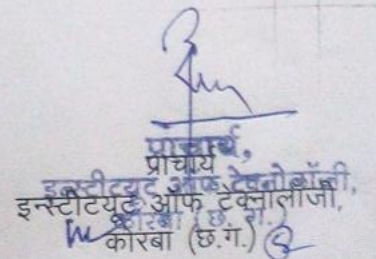 प्राचार्य,
प्राचार्य
इन्स्टीटयूट ऑफ टेक्नोलॉजी,
इन्स्टीटयूट ऑफ टेक्नोलॉजी,
कोरबा (छ. ग.)
कोरबा (छ.ग.)